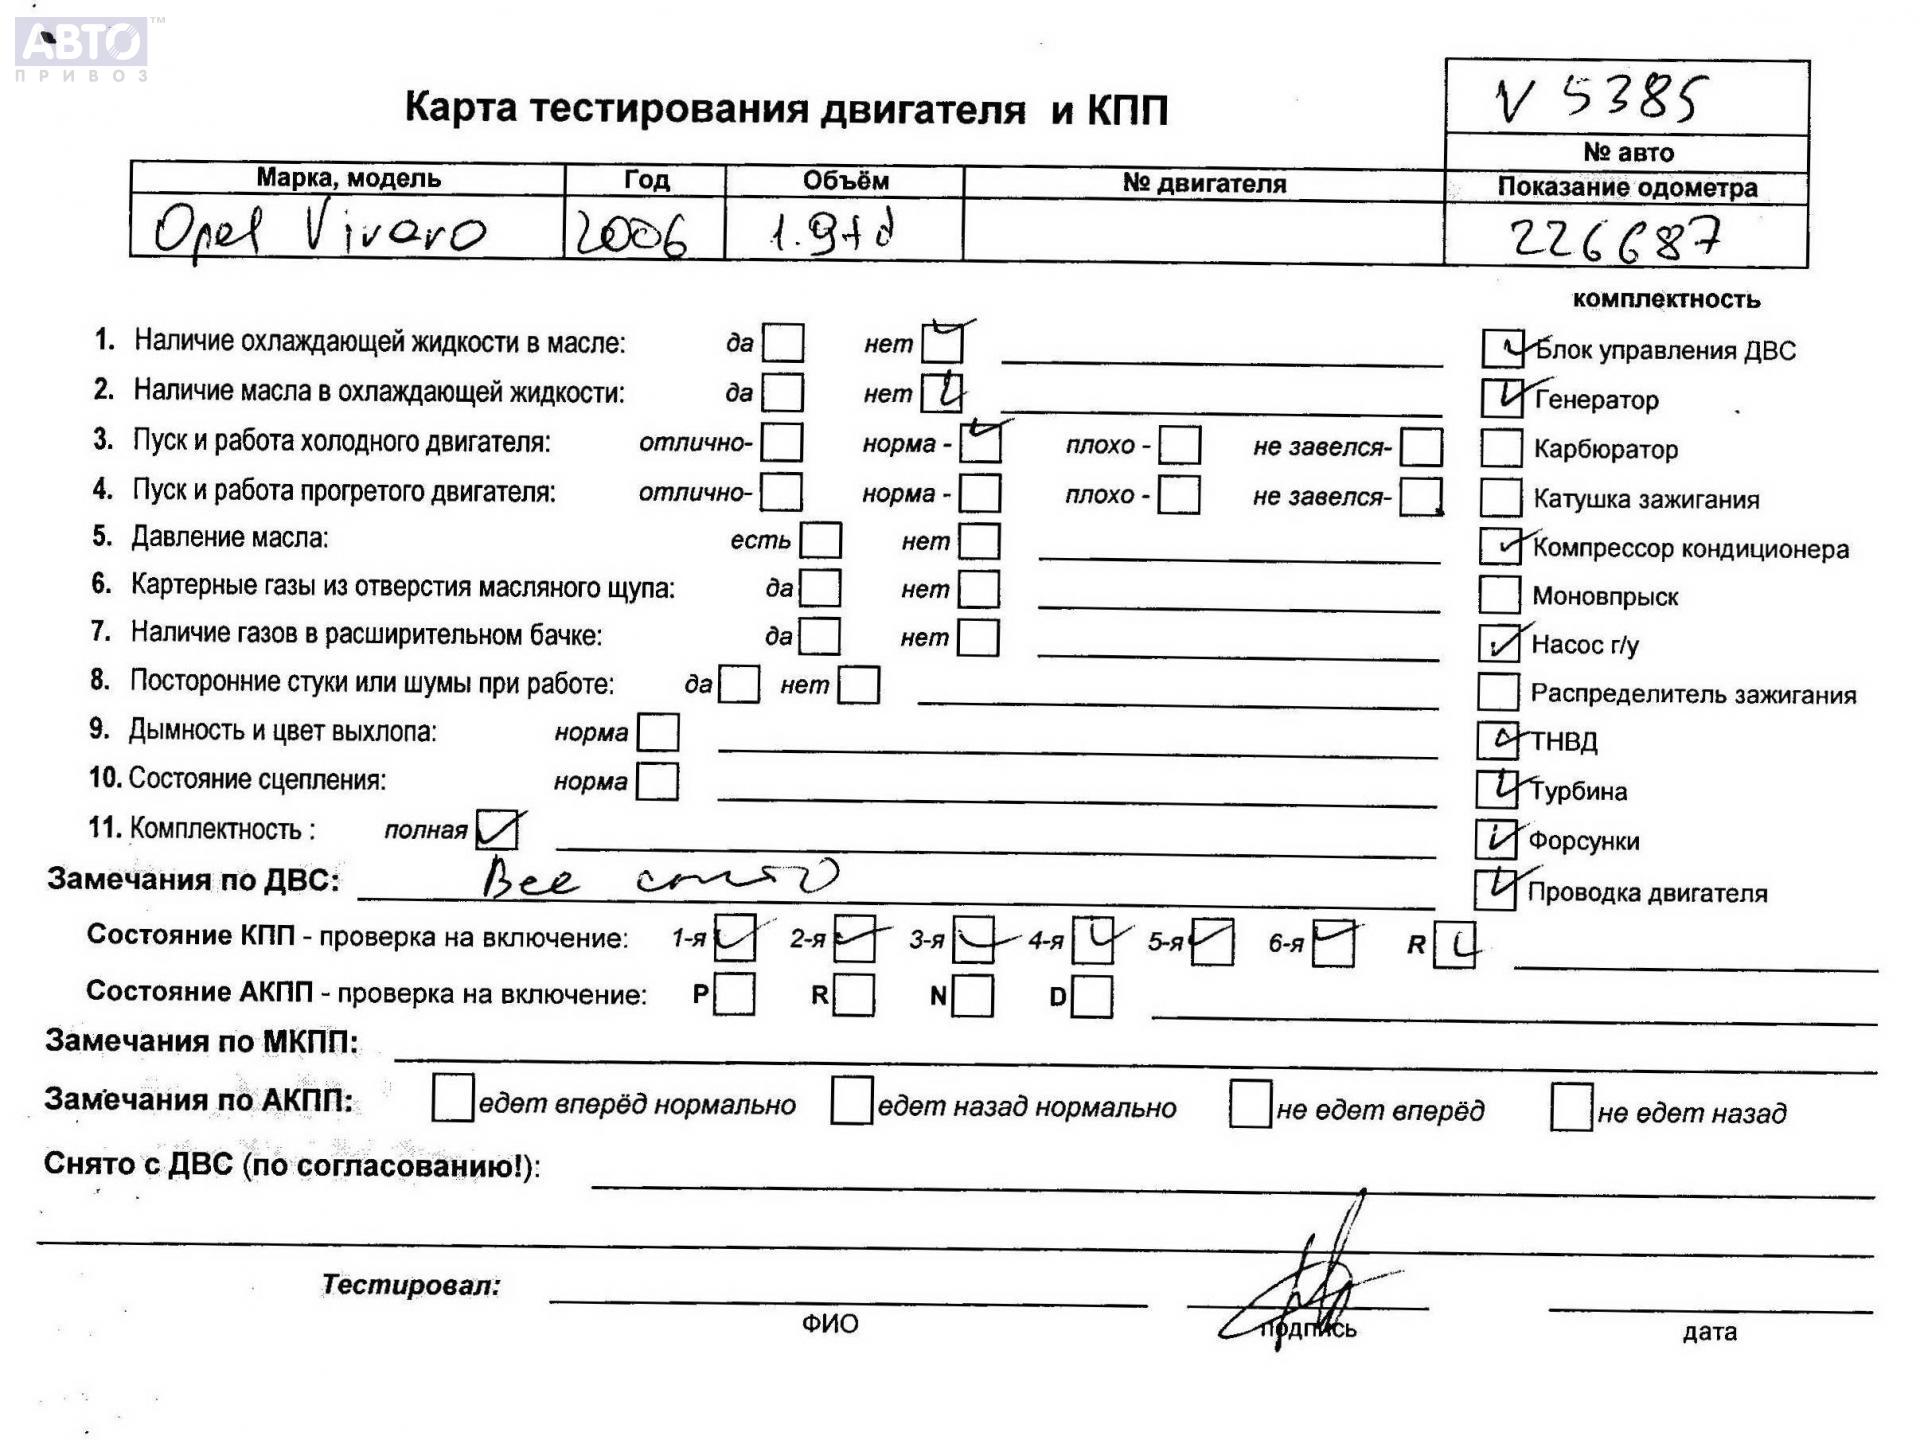 АВТО™
ПРИВОЗ
V 5385
Карта тестирования двигателя и КПП
№ авто
Марка, модель Год Объём № двигателя Показание одометра
Opel Vivaro 2006 1.9td 226687
комплектность
1. Наличие охлаждающей жидкости в масле: да нет Блок управления ДВС
2. Наличие масла в охлаждающей жидкости: да нет Генератор
3. Пуск и работа холодного двигателя: отлично- норма - плохо - не завелся- Карбюратор
4. Пуск и работа прогретого двигателя: отлично- норма - плохо - не завелся- Катушка зажигания
5. Давление масла: есть нет Компрессор кондиционера
6. Картерные газы из отверстия масляного щупа: да нет Моновпрыск
7. Наличие газов в расширительном бачке: да нет Насос г/у
8. Посторонние стуки или шумы при работе: да нет Распределитель зажигания
9. Дымность и цвет выхлопа: норма ТНВД
10. Состояние сцепления: норма Турбина
11. Комплектность : полная Форсунки
Замечания по ДВС: Все снято Проводка двигателя
Состояние КПП - проверка на включение: 1-я 2-я 3-я 4-я 5-я 6-я R
Состояние АКПП - проверка на включение: P R N D
Замечания по МКПП:
Замечания по АКПП: едет вперёд нормально едет назад нормально не едет вперёд не едет назад
Снято с ДВС (по согласованию!):
Тестировал:
ФИО подпись дата